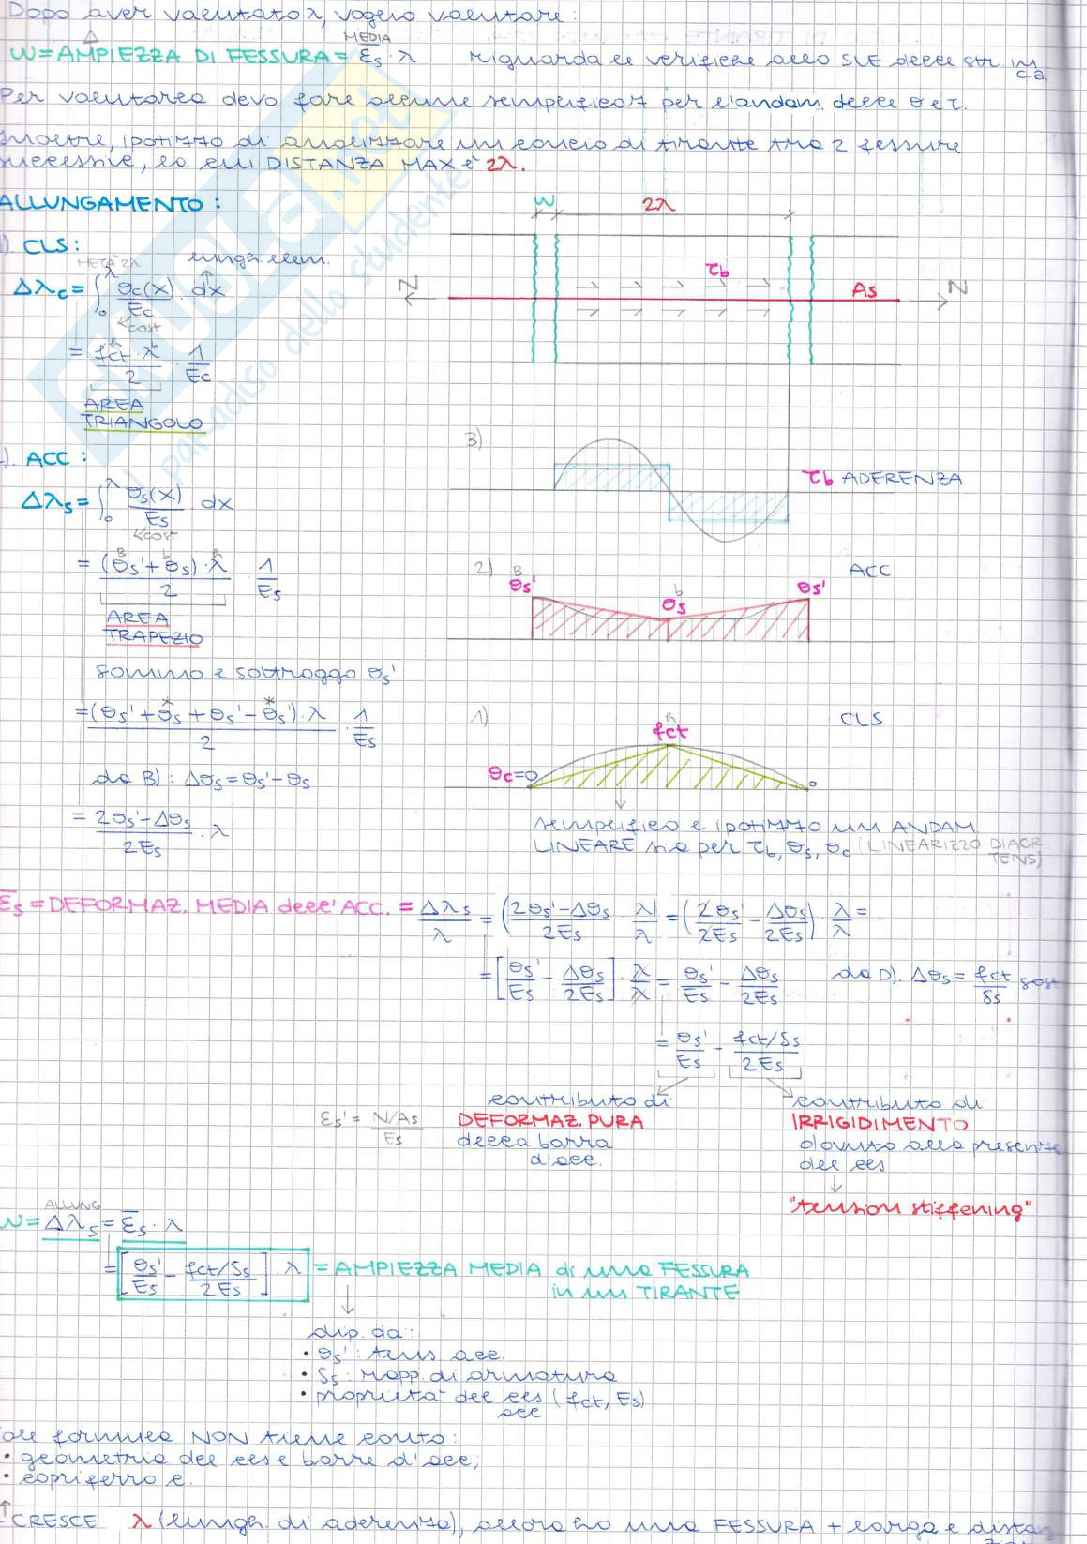 Dopo aver valutato λ, voglio valutare:
MEDIA
W = AMPIEZZA DI FESSURA = ε̅s · λ riguarda le verifiche allo SLE delle str. in ca
Per valutarla devo fare alcune semplificaz per l'andam. delle σ e τ.
Inoltre, ipotizzo di analizzare un concio di tirante tra 2 fessure
successive, la cui DISTANZA MAX è 2λ.
ALLUNGAMENTO:
W 2λ
). CLS:
META' 2λ lungh elem.
Δλc = ∫₀^λ σc(x)/Ec · dx
cost
= fct · λ / 2 · 1/Ec
AREA
TRIANGOLO
N τb As N
). ACC:
Δλs = ∫₀^λ σs(x)/Es dx
cost
= (σs' + σs) · λ / 2 · 1/Es
AREA
TRAPEZIO
3)
τb ADERENZA
2) B σs' b σs σs' ACC
sommo e sottraggo σs'
= (σs' + σs + σs' - σs') · λ / 2 · 1/Es
da B): Δσs = σs' - σs
= 2σs' - Δσs / 2Es · λ
1) h fct CLS
σc=0 0
semplifico e ipotizzo un ANDAM
LINEARE sia per τb, σs, σc (LINEARIZZO DIAGR
TENS)
ε̅s = DEFORMAZ. MEDIA dell'ACC. = Δλs/λ = (2σs' - Δσs / 2Es · λ/λ = (2σs'/2Es - Δσs/2Es) · λ/λ =
= [σs'/Es - Δσs/2Es] · λ/λ = σs'/Es - Δσs/2Es da D). Δσs = fct/ρs sost
= σs'/Es - fct/ρs / 2Es
contributo di contributo di
εs' = N/As / Es DEFORMAZ. PURA IRRIGIDIMENTO
della barra dovuto alla presenza
d'acc. del cls
"tension stiffening"
ALLUNG
W = Δλs = ε̅s · λ
= [σs'/Es - fct/ρs / 2Es] · λ = AMPIEZZA MEDIA di una FESSURA
in un TIRANTE
dip. da:
• σs': tens acc.
• ρs: rapp. di armatura
• proprietà del cls (fct, Es)
acc
ale formula NON tiene conto:
• geometria del cls e barre d'acc;
• copriferro c.
CRESCE λ (lungh. di aderenza), allora ho una FESSURA + larga e